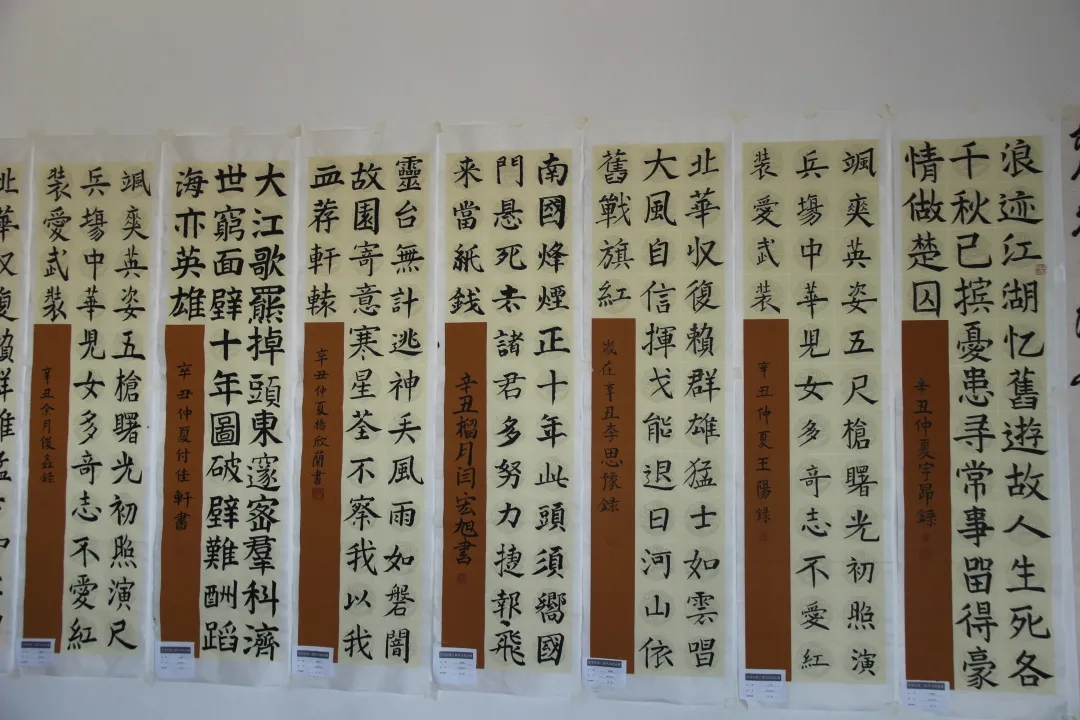 浪迹江湖忆舊遊故人生死各
千秋已摈憂患尋常事畱得豪
情做楚囚
辛丑仲夏宇昂錄
颯爽英姿五尺槍曙光初照演
兵塲中華児女多奇志不愛紅
装愛武装
辛丑仲夏王陽錄
北華収復賴群雄猛士如雲唱
大風自信揮戈能退日河山依
舊戰旗紅
歲在辛丑李思懷錄
南國烽煙正十年此頭須嚮國
門悬死去諸君多努力捷報飛
来當紙錢
辛丑榴月闫宏旭書
靈台無計逃神矢風雨如磐闇
故園寄意寒星荃不察我以我
血荐軒轅
辛丑仲夏楊欣蘭書
大江歌罷掉頭東邃宻羣科濟
世窮面壁十年圖破壁難酬蹈
海亦英雄
辛丑仲夏付佳軒書
颯爽英姿五槍曙光初照演尺
兵塲中華児女多奇志不愛紅
装愛武装
辛丑余月俊鑫錄
北華収復賴群雄猛